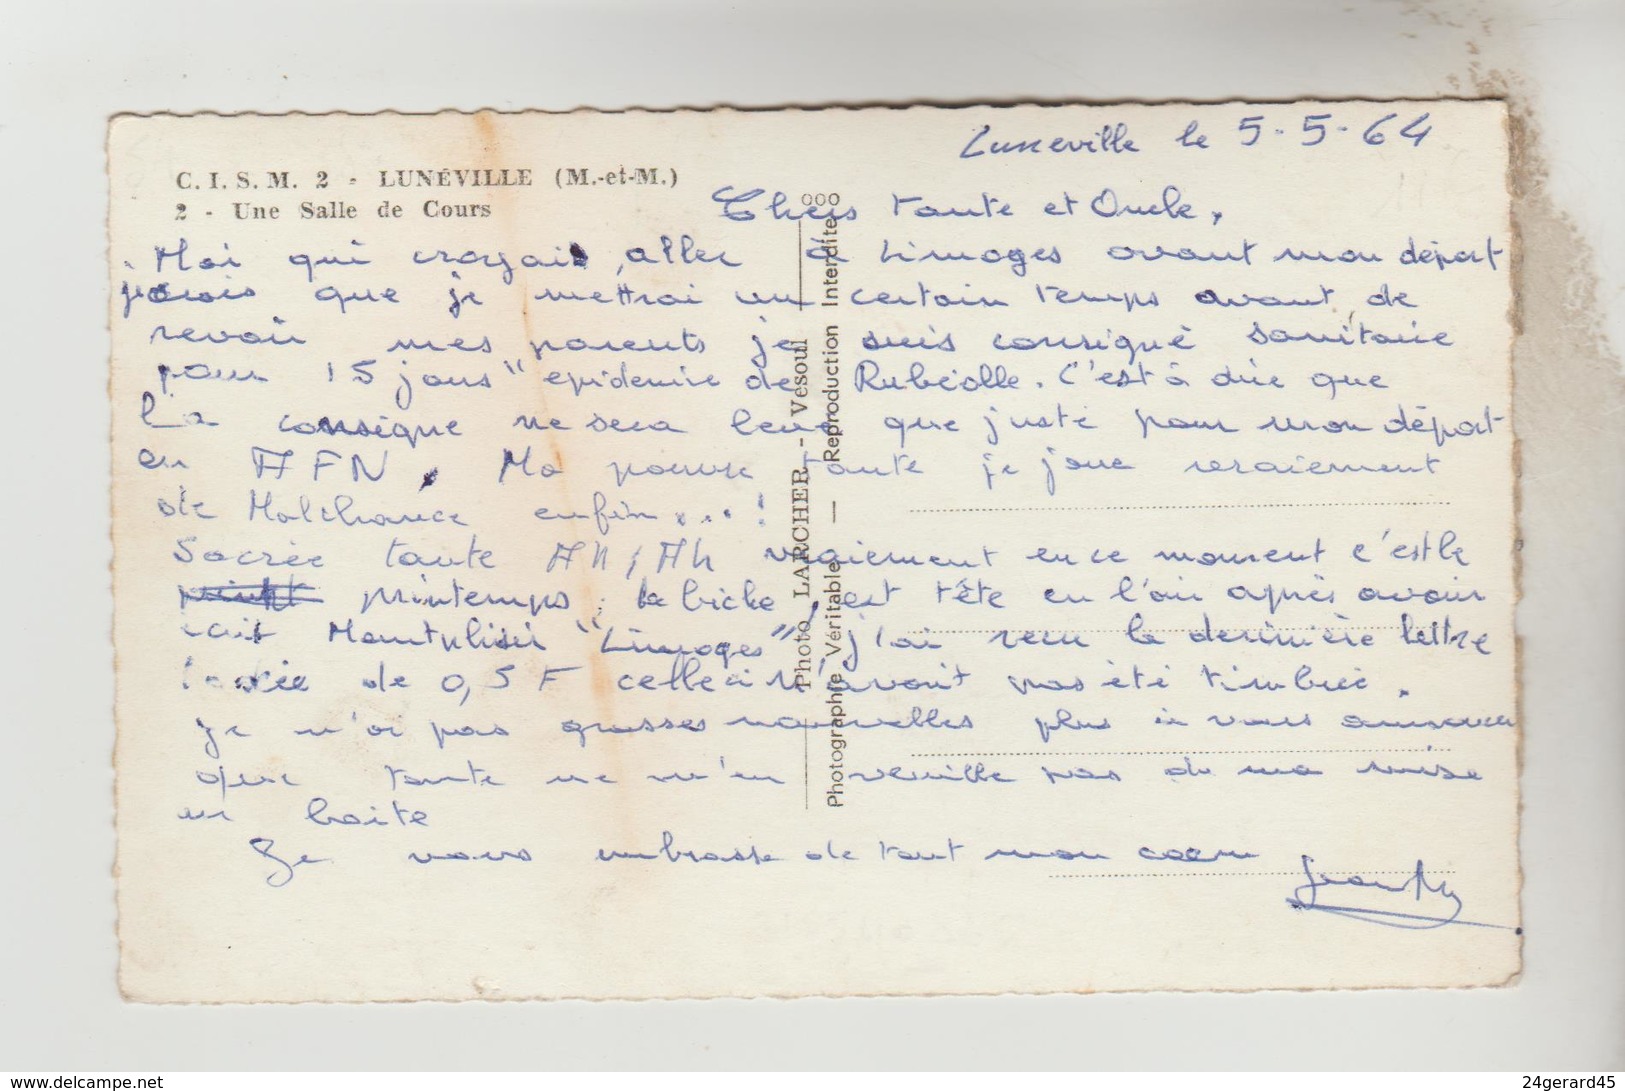 Luneville le 5-5-64
C. I. S. M. 2 - LUNÉVILLE (M.-et-M.)
2 - Une Salle de Cours
Chers tante et Oncle,
Moi qui croyais aller à Limoges avant mon départ
que je mettrai un certain temps avant de
revoir mes parents je suis consigné sanitaire
pour 15 jours" epidemie de Rubéolle. C'est à dire que
la consigne ne sera levé que juste pour mon départ
en AFN. Ma pauvre tante je joue vraiement
de Malchance enfin...!
Sacrée tante Ah, Ah vraiement en ce moment c'est le
printemps, la biche, est tête en l'air après avoir
"Limoges", j'ai recu la dernière lettre
de 0,5 F celle ci n'avait pas été timbrée.
Je n'ai pas grosses nouvelles plus à vous annoncer
que tante ne m'en veuille pas de ma mise
en boite
Je vous embrasse de tout mon coeur
ooo
Photo LARCHER - Vesoul
Photographie Véritable — Reproduction Interdite
24gerard45